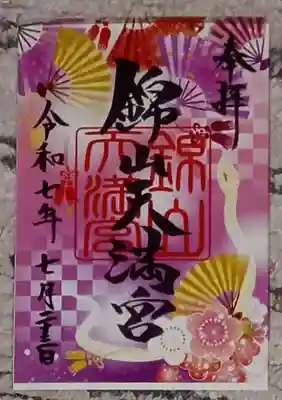 奉拝
錦山天満宮
錦山天満宮
令和七年 七月二十三日